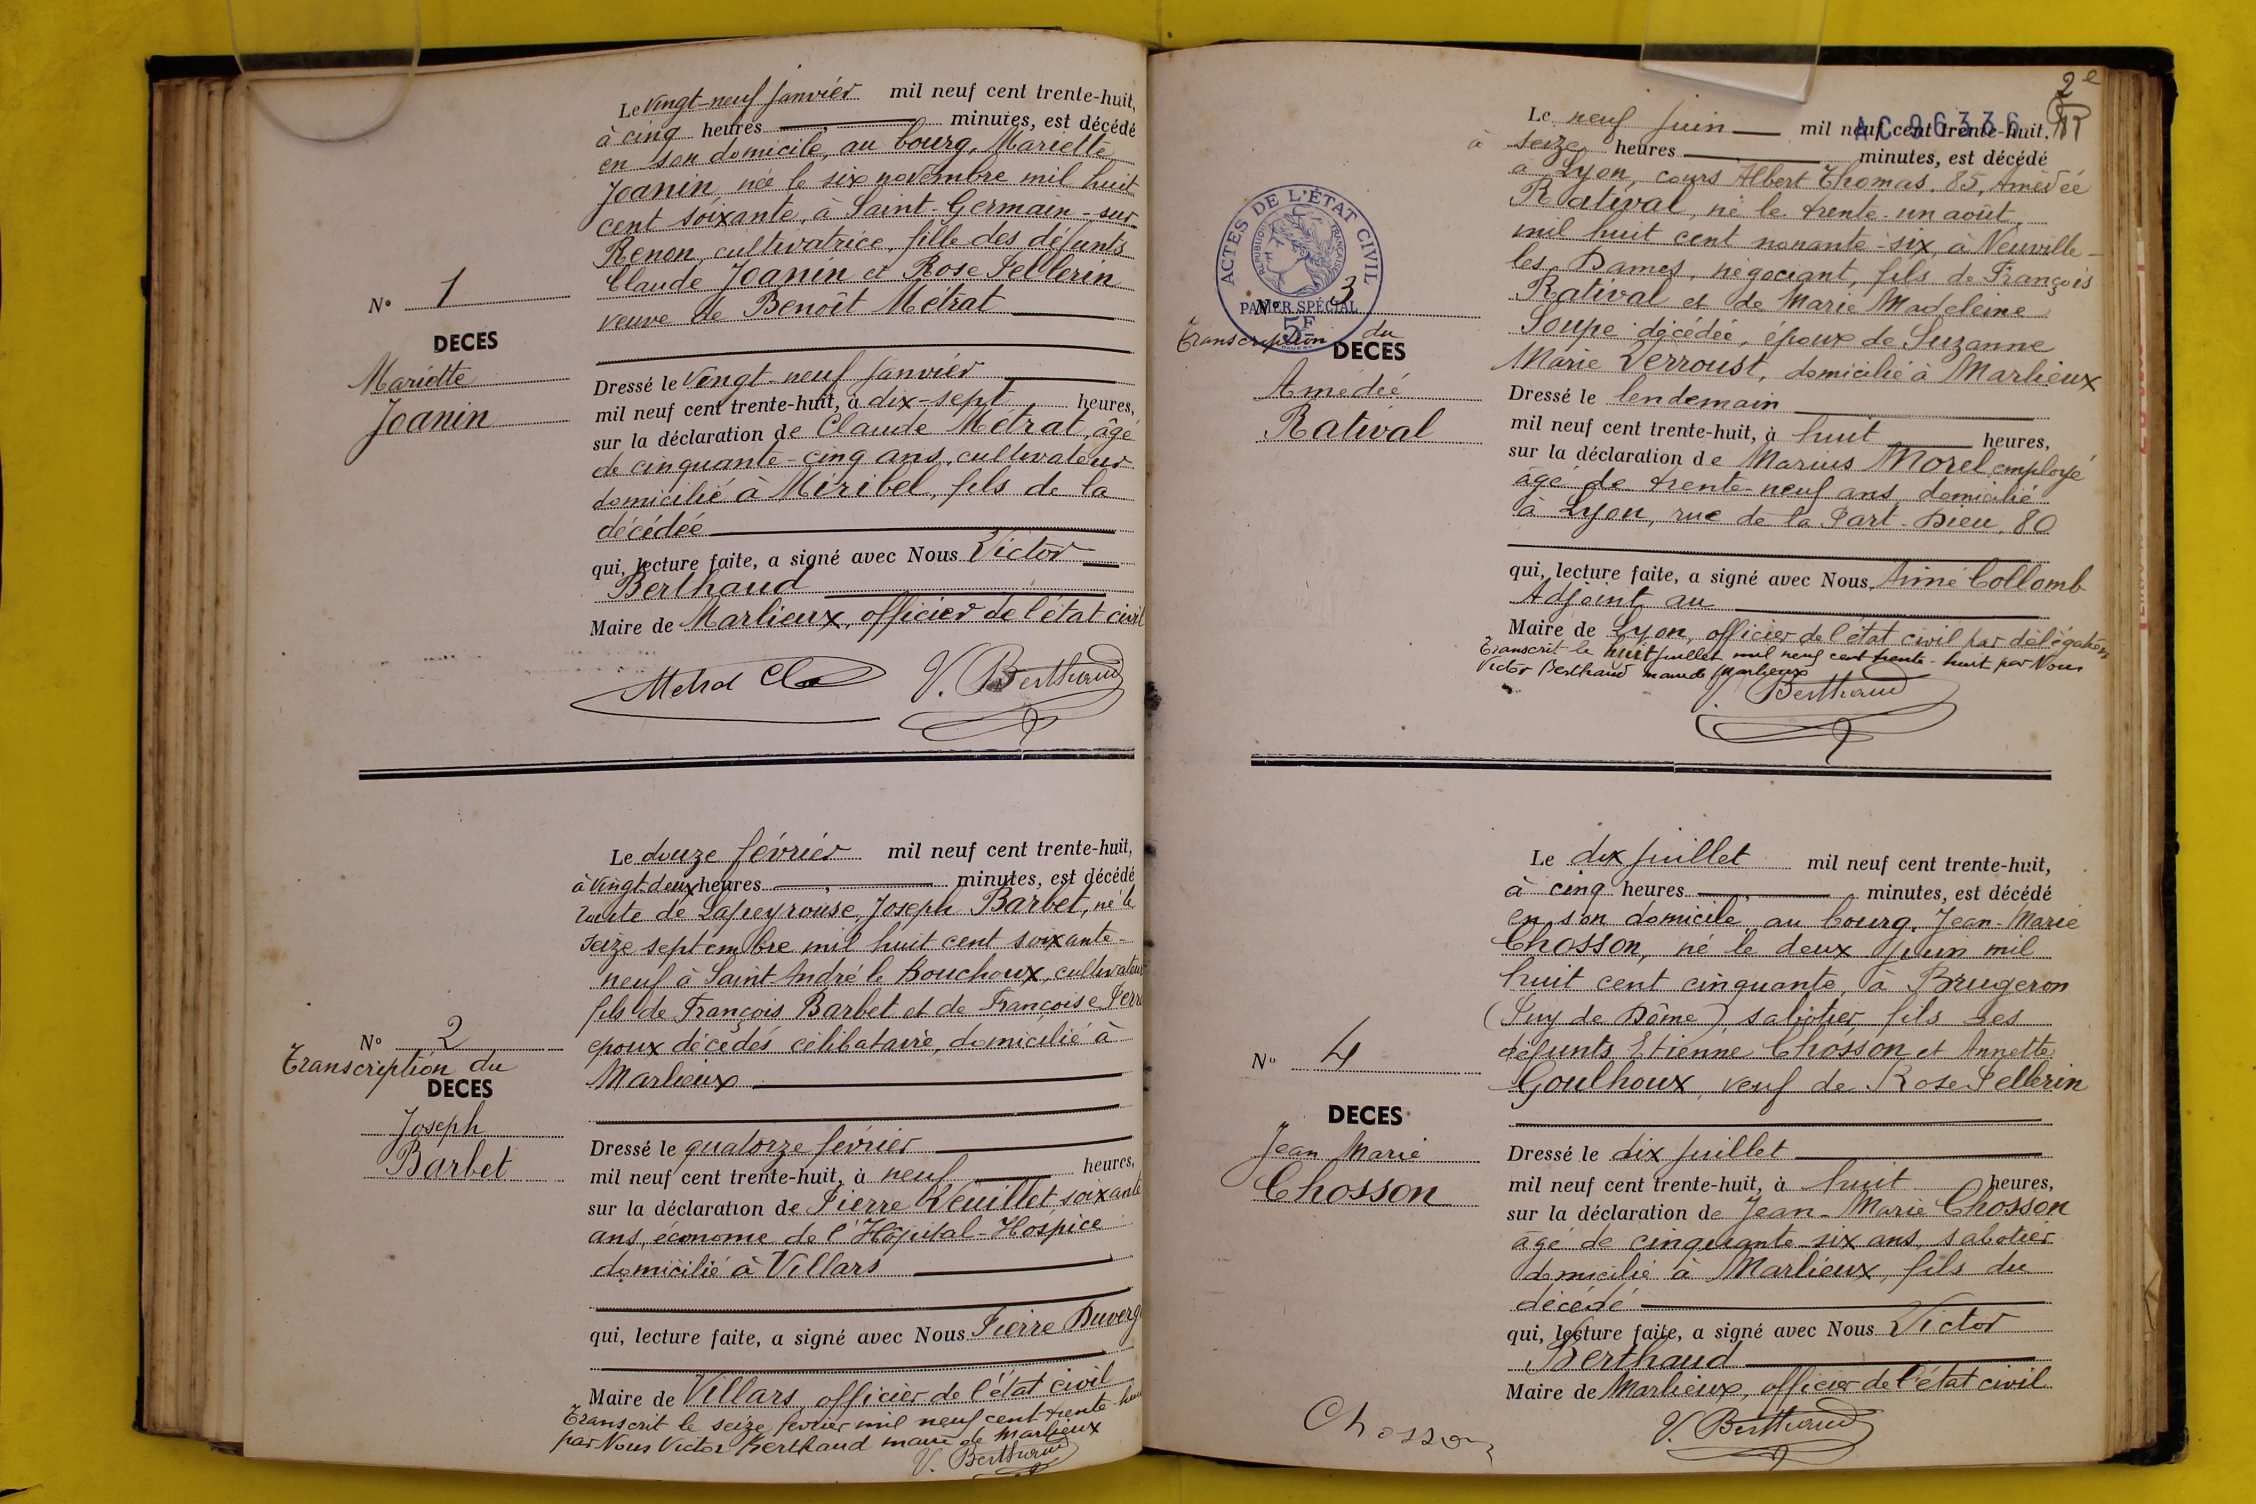 Le vingt-neuf janvier mil neuf cent trente-huit,
à cinq heures , minutes, est décédé
en son domicile, au bourg, Mariette
Joanin, née le six novembre mil huit
cent soixante, à Saint-Germain-sur
Renon, cultivatrice, fille des défunts
Claude Joanin et Rose Pellerin
veuve de Benoît Métrat
N° 1
DECES
Mariette
Joanin
Dressé le vingt-neuf janvier
mil neuf cent trente-huit, à dix-sept heures,
sur la déclaration de Claude Métrat, âgé
de cinquante-cinq ans, cultivateur
domicilié à Miribel, fils de la
décédée
qui, lecture faite, a signé avec Nous Victor
Berthaud
Maire de Marlieux, officier de l'état civil
Metrat Cl V. Berthaud
Le douze février mil neuf cent trente-huit,
à vingt-deux heures , minutes, est décédé
route de Lapeyrouse, Joseph Barbet, né le
seize septembre mil huit cent soixante-
neuf à Saint-André le Bouchoux, cultivateur
fils de François Barbet et de Françoise
époux décédés célibataire, domicilié à
Marlieux
N° 2
Transcription du
DECES
Joseph
Barbet
Dressé le quatorze février
mil neuf cent trente-huit, à neuf heures,
sur la déclaration de Pierre soixante
ans, économe de l'Hôpital-Hospice
domicilié à Villars
qui, lecture faite, a signé avec Nous Pierre Duverg
Maire de Villars, officier de l'état civil
Transcrit le seize février mil neuf cent trente
par Nous Victor Berthaud maire de Marlieux
V. Berthaud
2e
AC 96336
Le neuf juin mil neuf cent trente-huit,
à seize heures minutes, est décédé
à Lyon, cours Albert Thomas, 85, Amédée
Ratival, né le trente-un août
mil huit cent nonante-six, à Neuville-
les-Dames, négociant, fils de François
Ratival et de Marie Madeleine
Soupe décédée, époux de Suzanne
Marie Verroust, domicilié à Marlieux
ACTES DE L'ÉTAT CIVIL
RÉPUBLIQUE FRANÇAISE
PAPIER SPÉCIAL
5F
N° 3
Transcription du
DECES
Amédée
Ratival
Dressé le lendemain
mil neuf cent trente-huit, à huit heures,
sur la déclaration de Marius Morel employé
âgé de trente-neuf ans, domicilié
à Lyon, rue de la Part-Dieu, 80
qui, lecture faite, a signé avec Nous Aimé Collomb
Adjoint au
Maire de Lyon, officier de l'état civil par délégation
Transcrit le huit juillet mil neuf cent trente-huit par Nous
Victor Berthaud maire de Marlieux
V. Berthaud
Le dix juillet mil neuf cent trente-huit,
à cinq heures , minutes, est décédé
en son domicile, au bourg, Jean-Marie
Chosson, né le deux juin mil
huit cent cinquante, à Brugeron
(Puy de Dôme), sabotier, fils des
défunts Etienne Chosson et Annette
Goulhoux, veuf de Rose Pellerin
N° 4
DECES
Jean Marie
Chosson
Dressé le dix juillet
mil neuf cent trente-huit, à huit heures,
sur la déclaration de Jean-Marie Chosson
âgé de cinquante-six ans, sabotier
domicilié à Marlieux, fils du
décédé
qui, lecture faite, a signé avec Nous Victor
Berthaud
Maire de Marlieux, officier de l'état civil
Chosson V. Berthaud